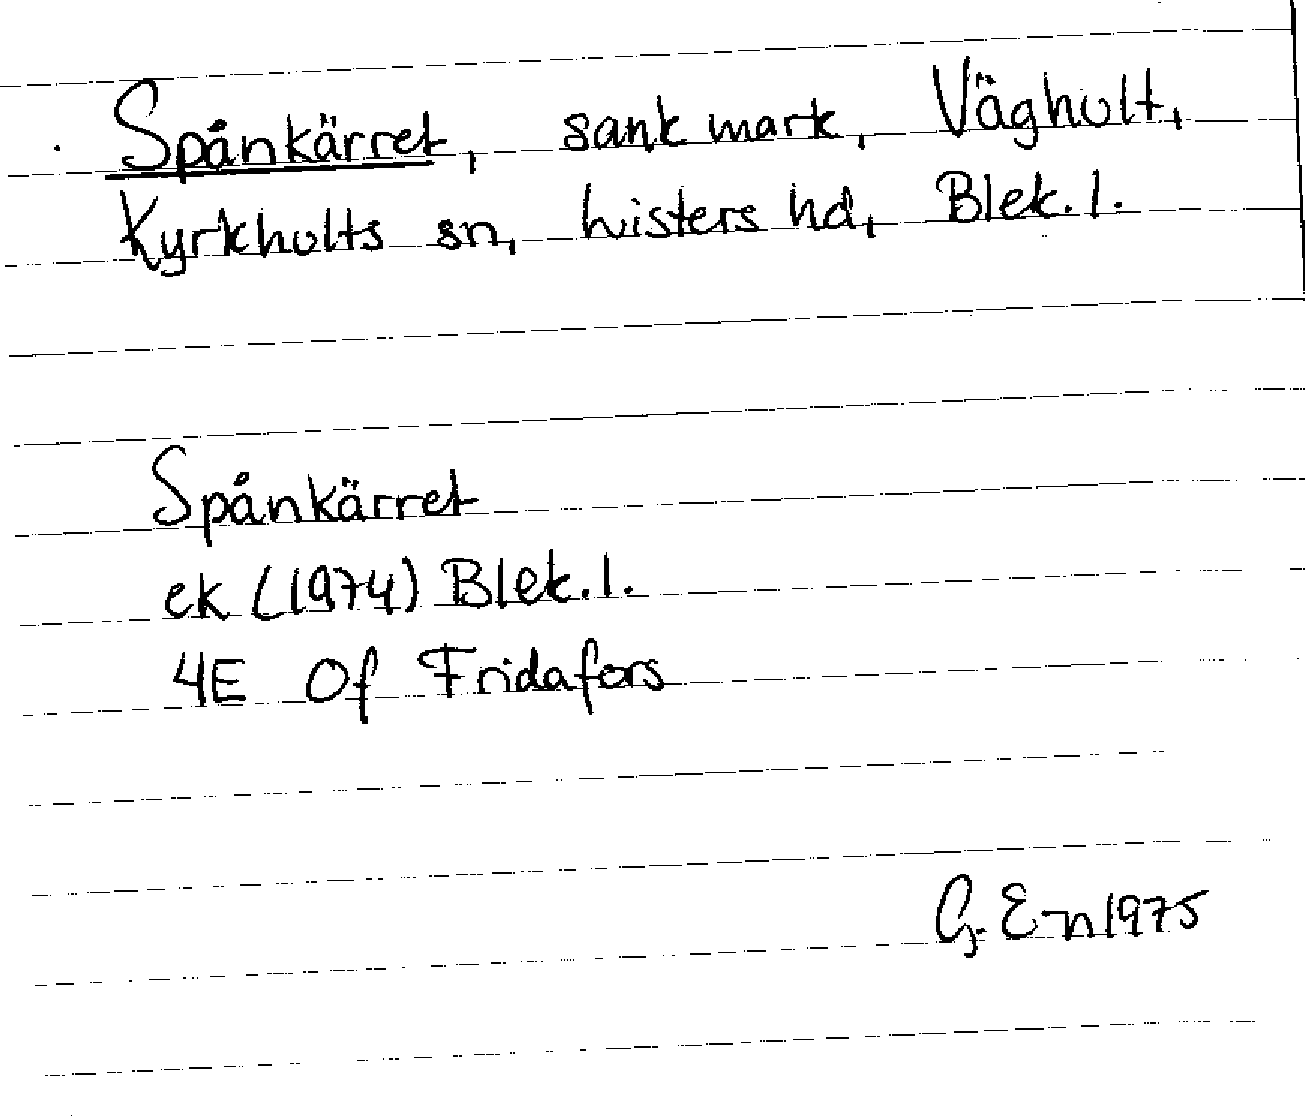 Spånkärret, sank mark, Vägholt,
Kyrkhults sn, Listers hd, Blek. l.
Spånkärret
ek (1974) Blek. l.
4E 0f Fridafors
G. E-n 1975